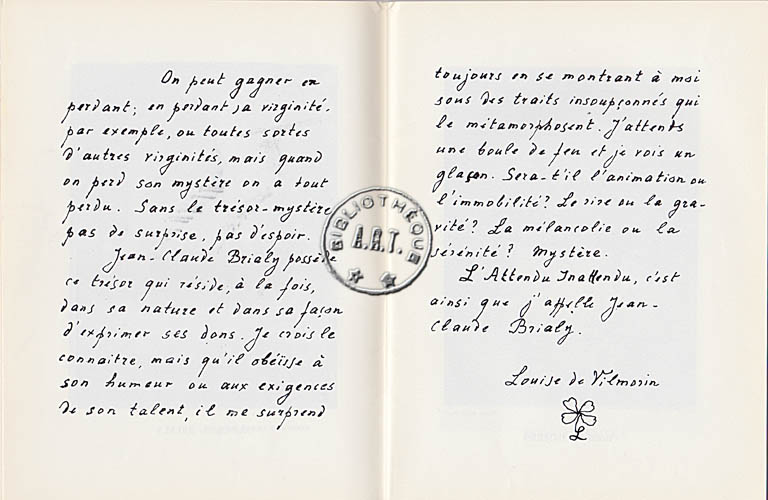 On peut gagner en
perdant; en perdant sa virginité.
par exemple, ou toutes sortes
d'autres virginités, mais quand
on perd son mystère on a tout
perdu. Sans le trésor-mystère
pas de surprise, pas d'espoir.
Jean-Claude Brialy possède
ce trésor qui réside, à la fois,
dans sa nature et dans sa façon
d'exprimer ses dons. Je crois le
connaitre, mais qu'il obéisse à
son humeur ou aux exigences
de son talent, il me surprend
toujours en se montrant à moi
sous des traits insoupçonnés qui
le métamorphosent. J'attends
une boule de feu et je vois un
glaçon. Sera-t'il l'animation ou
l'immobilité? Le rire ou la gra-
vité? La mélancolie ou la
sérénité? Mystère.
L'Attendu Inattendu, c'est
ainsi que j'appelle Jean-
Claude Brialy.
Louise de Vilmorin
L
BIBLIOTHÈQUE
A.R.T.